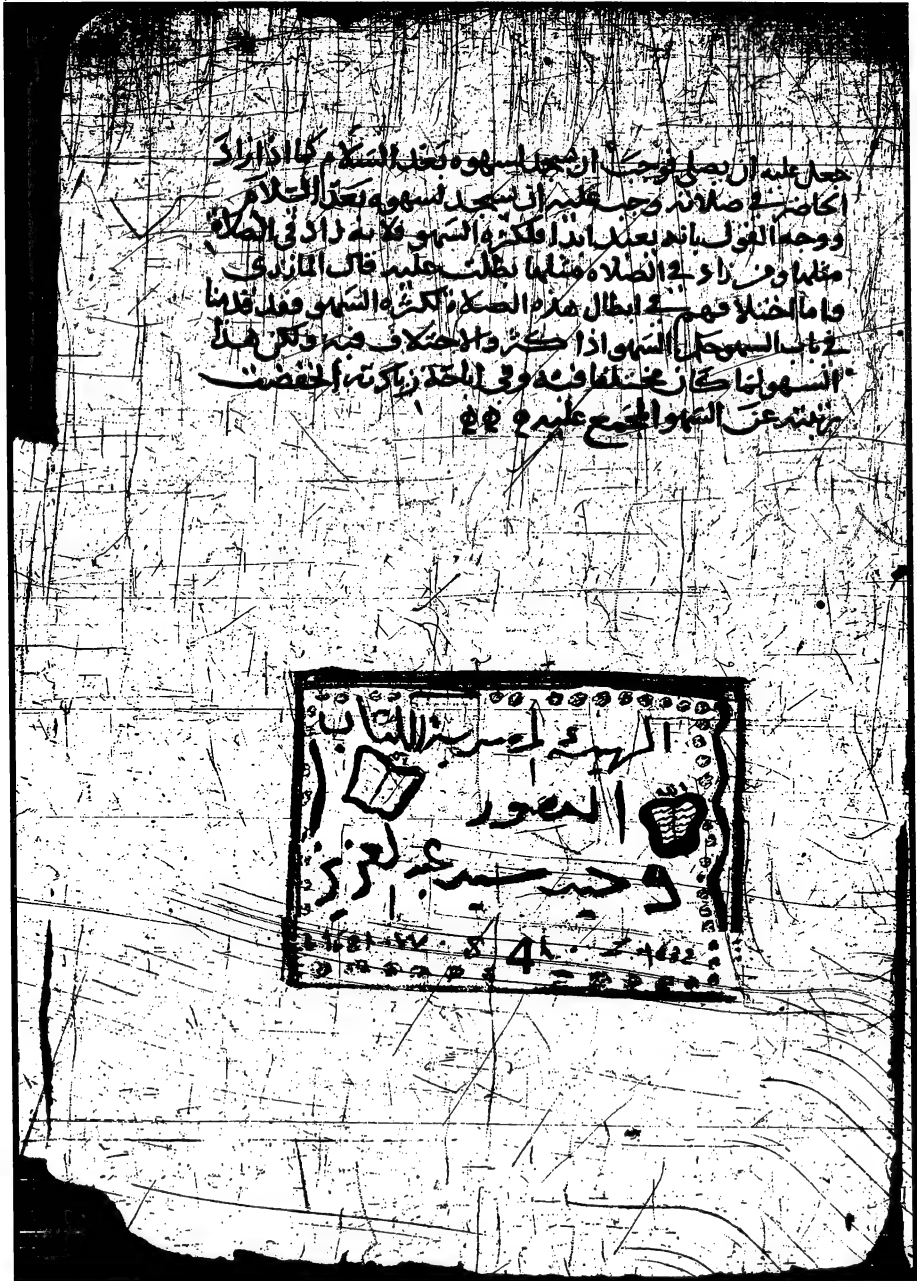 جعل عليه ان يصلي فوجب ان يسجد لسهوه بعد السلام كما اذا زاد
الحاضر في صلاته وجب عليه ان يسجد لسهوه بعد السلام
ووجه القول بانه يعيد ابدا فلكثرة السهو فلانه زاد في الصلاة
مثلها ومن زاد في الصلاة مثلها بطلت عليه قال المازري
واما اختلافهم في ابطال هذه الصلاة لكثرة السهو فقد قدمنا
في باب السهو حكم السهو اذا كثر والاختلاف فيه ولكن هذا
السهو لما كان مختلفا فيه وفي اباحة زيادته انخفضت
رتبته عن السهو المجمع عليه
الهيئة المصرية للكتاب
المصور
وحيد سيد عبد العزيز